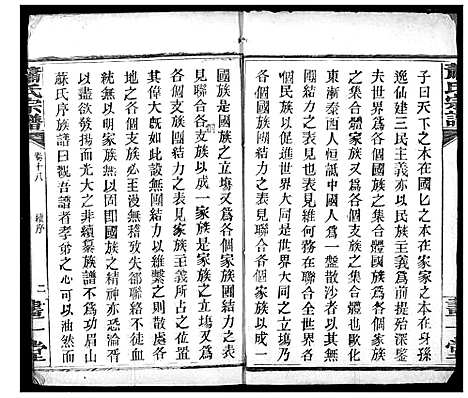 子曰天下之本在國國之本在家家之本在身孫
逸仙建三民主義亦以民族主義爲前提深鑒
夫世界爲各個國族之集合體國族又爲各個家族
之集合體家族又爲各個支族之集合體也歐化
東漸泰西人恒詆中國人爲一盤散沙者以其無
團結力之表見維何務在聯合全世界各
個國族以促進世界大同是世界大同之立塲乃
爲各個國族團結力之表見聯合各家族以成一
國族是國族之立塲又爲各個家族團結力之表
見聯合各支族以成一家族是家族之立塲又爲
各個支族團結力之表見家族主義所占之效力
其偉大蓋如此設無團結力以維繫之則散處各
方之支族必至漫無稽攷失却聯絡不徒血
統無以明家族無以固即國族之精神亦恐淪胥
以盡欲發揚而光大之非續纂族譜不爲功眉山
蘇氏序族譜曰觀吾譜者孝弟之心可以油然而
蕭氏宗譜
卷十八
續序
二
畫一堂